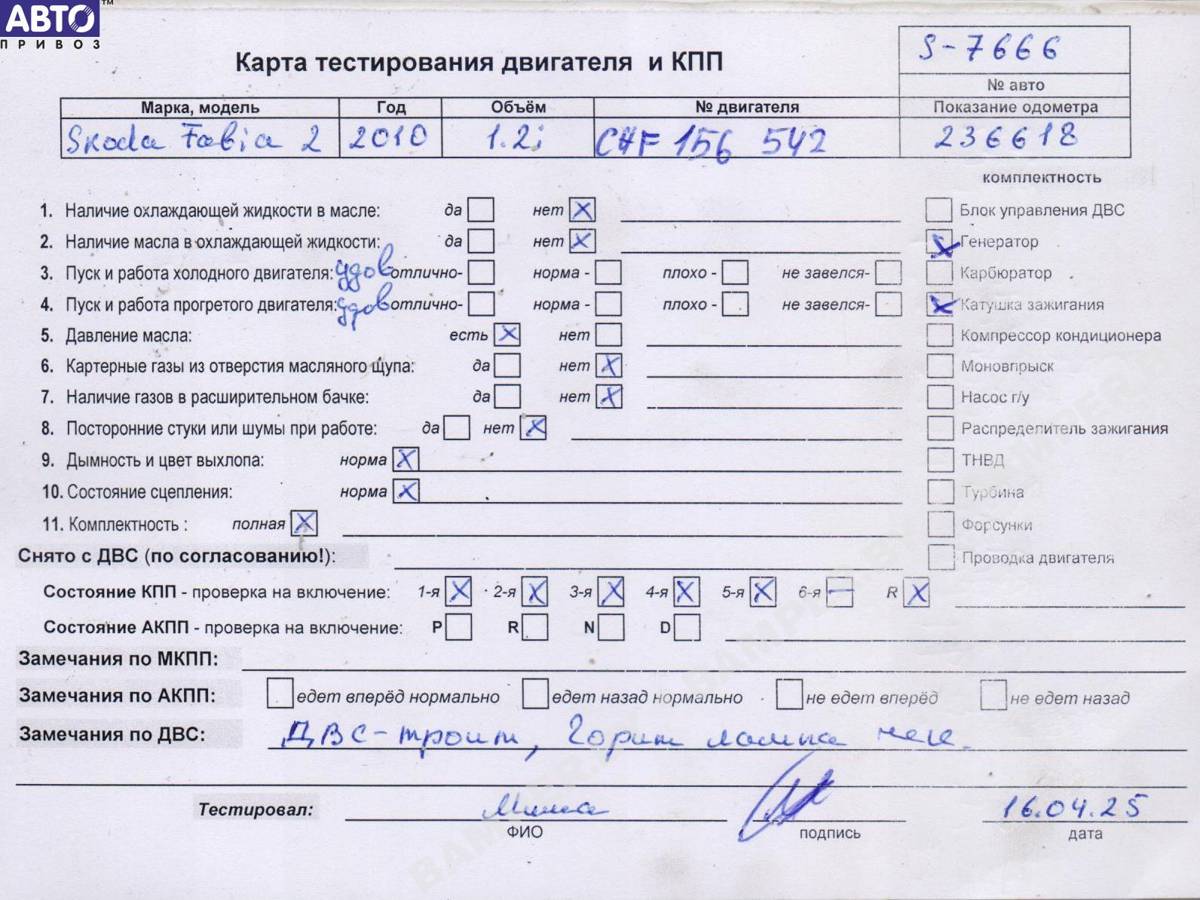 АВТО™
ПРИВОЗ
S-7666
Карта тестирования двигателя и КПП
№ авто
Марка, модель Год Объём № двигателя Показание одометра
Skoda Fabia 2 2010 1.2i CHF 156 542 236618
комплектность
1. Наличие охлаждающей жидкости в масле: да нет X Блок управления ДВС
2. Наличие масла в охлаждающей жидкости: да нет X X Генератор
3. Пуск и работа холодного двигателя: удов отлично- норма - плохо - не завелся- Карбюратор
4. Пуск и работа прогретого двигателя: удов отлично- норма - плохо - не завелся- X Катушка зажигания
5. Давление масла: есть X нет Компрессор кондиционера
6. Картерные газы из отверстия масляного щупа: да нет X Моновпрыск
7. Наличие газов в расширительном бачке: да нет X Насос г/у
8. Посторонние стуки или шумы при работе: да нет X Распределитель зажигания
9. Дымность и цвет выхлопа: норма X ТНВД
10. Состояние сцепления: норма X Турбина
11. Комплектность : полная X Форсунки
Снято с ДВС (по согласованию!): Проводка двигателя
Состояние КПП - проверка на включение: 1-я X 2-я X 3-я X 4-я X 5-я X 6-я — R X
Состояние АКПП - проверка на включение: P R N D
Замечания по МКПП:
Замечания по АКПП: едет вперёд нормально едет назад нормально не едет вперёд не едет назад
Замечания по ДВС: ДВС-троит, Горит лампа чек.
Тестировал: Миша 16.04.25
ФИО подпись дата